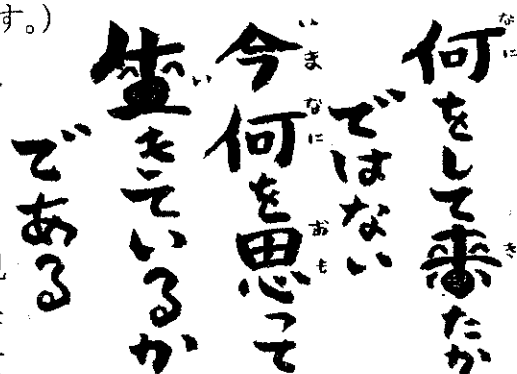 何をして来たか
ではない
今何を思って
生きているか
である
す。)